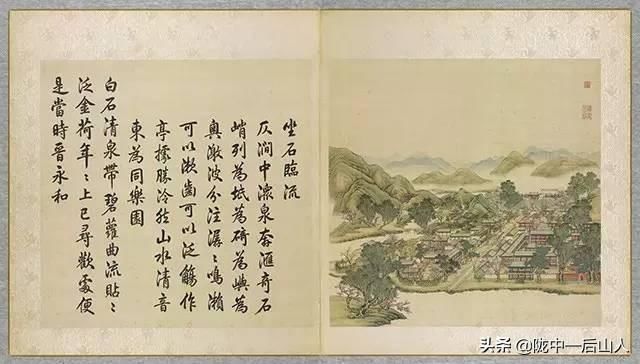 坐石臨流
仄澗中瀠泉奔滙奇石
峭列為坻為碕為嶼為
奧激波分注潺〻鳴瀨
可以漱齒可以泛觴作
亭據勝泠然山水清音
東為同樂園
白石清泉帶碧蘿曲流貼〻
泛金荷年〻上巳尋歡處便
是當時晉永和
头条 @陇中一后山人